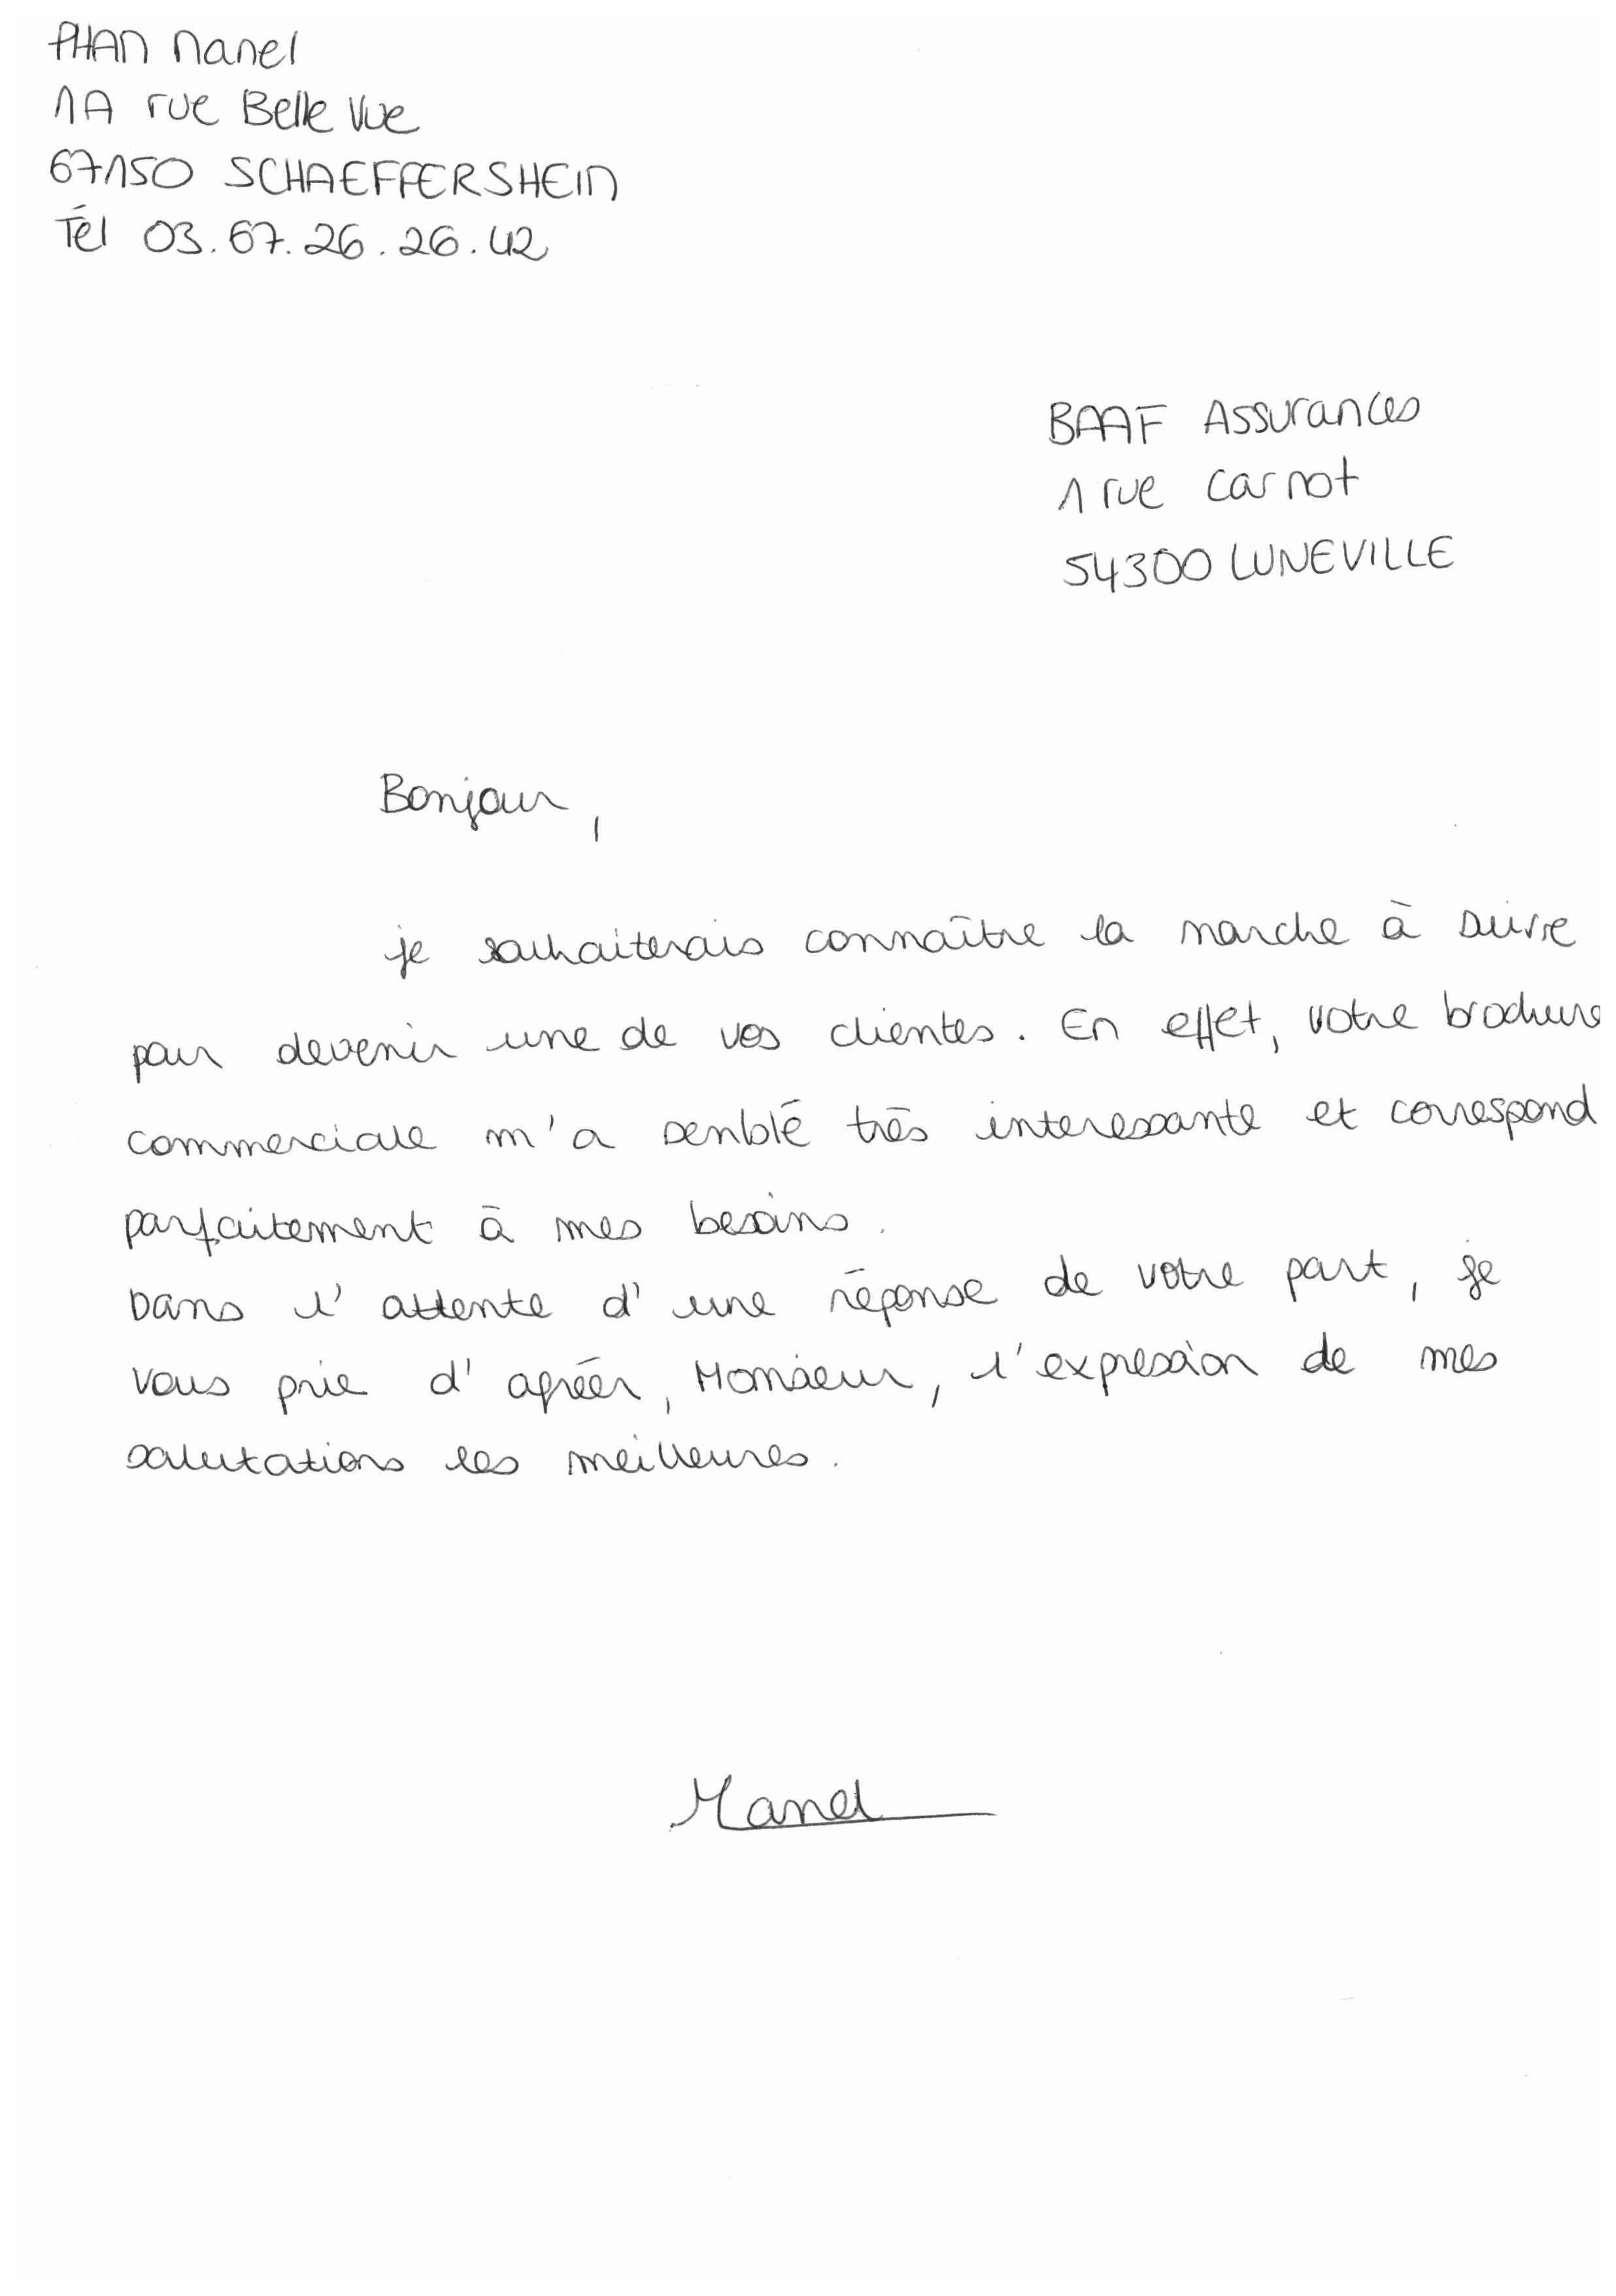 PHAN Manel
1A rue Belle Vue
67150 SCHAEFFERSHEIM
Tél 03.67.26.26.42
BAAF Assurances
1 rue Carnot
54300 LUNEVILLE
Bonjour,
je souhaiterais connaître la marche à suivre
pour devenir une de vos clientes. En effet, votre brochure
commerciale m'a semblé très interessante et correspond
parfaitement à mes besoins.
Dans l'attente d'une réponse de votre part, je
vous prie d'agréer, Monsieur, l'expression de mes
salutations les meilleures.
Manel